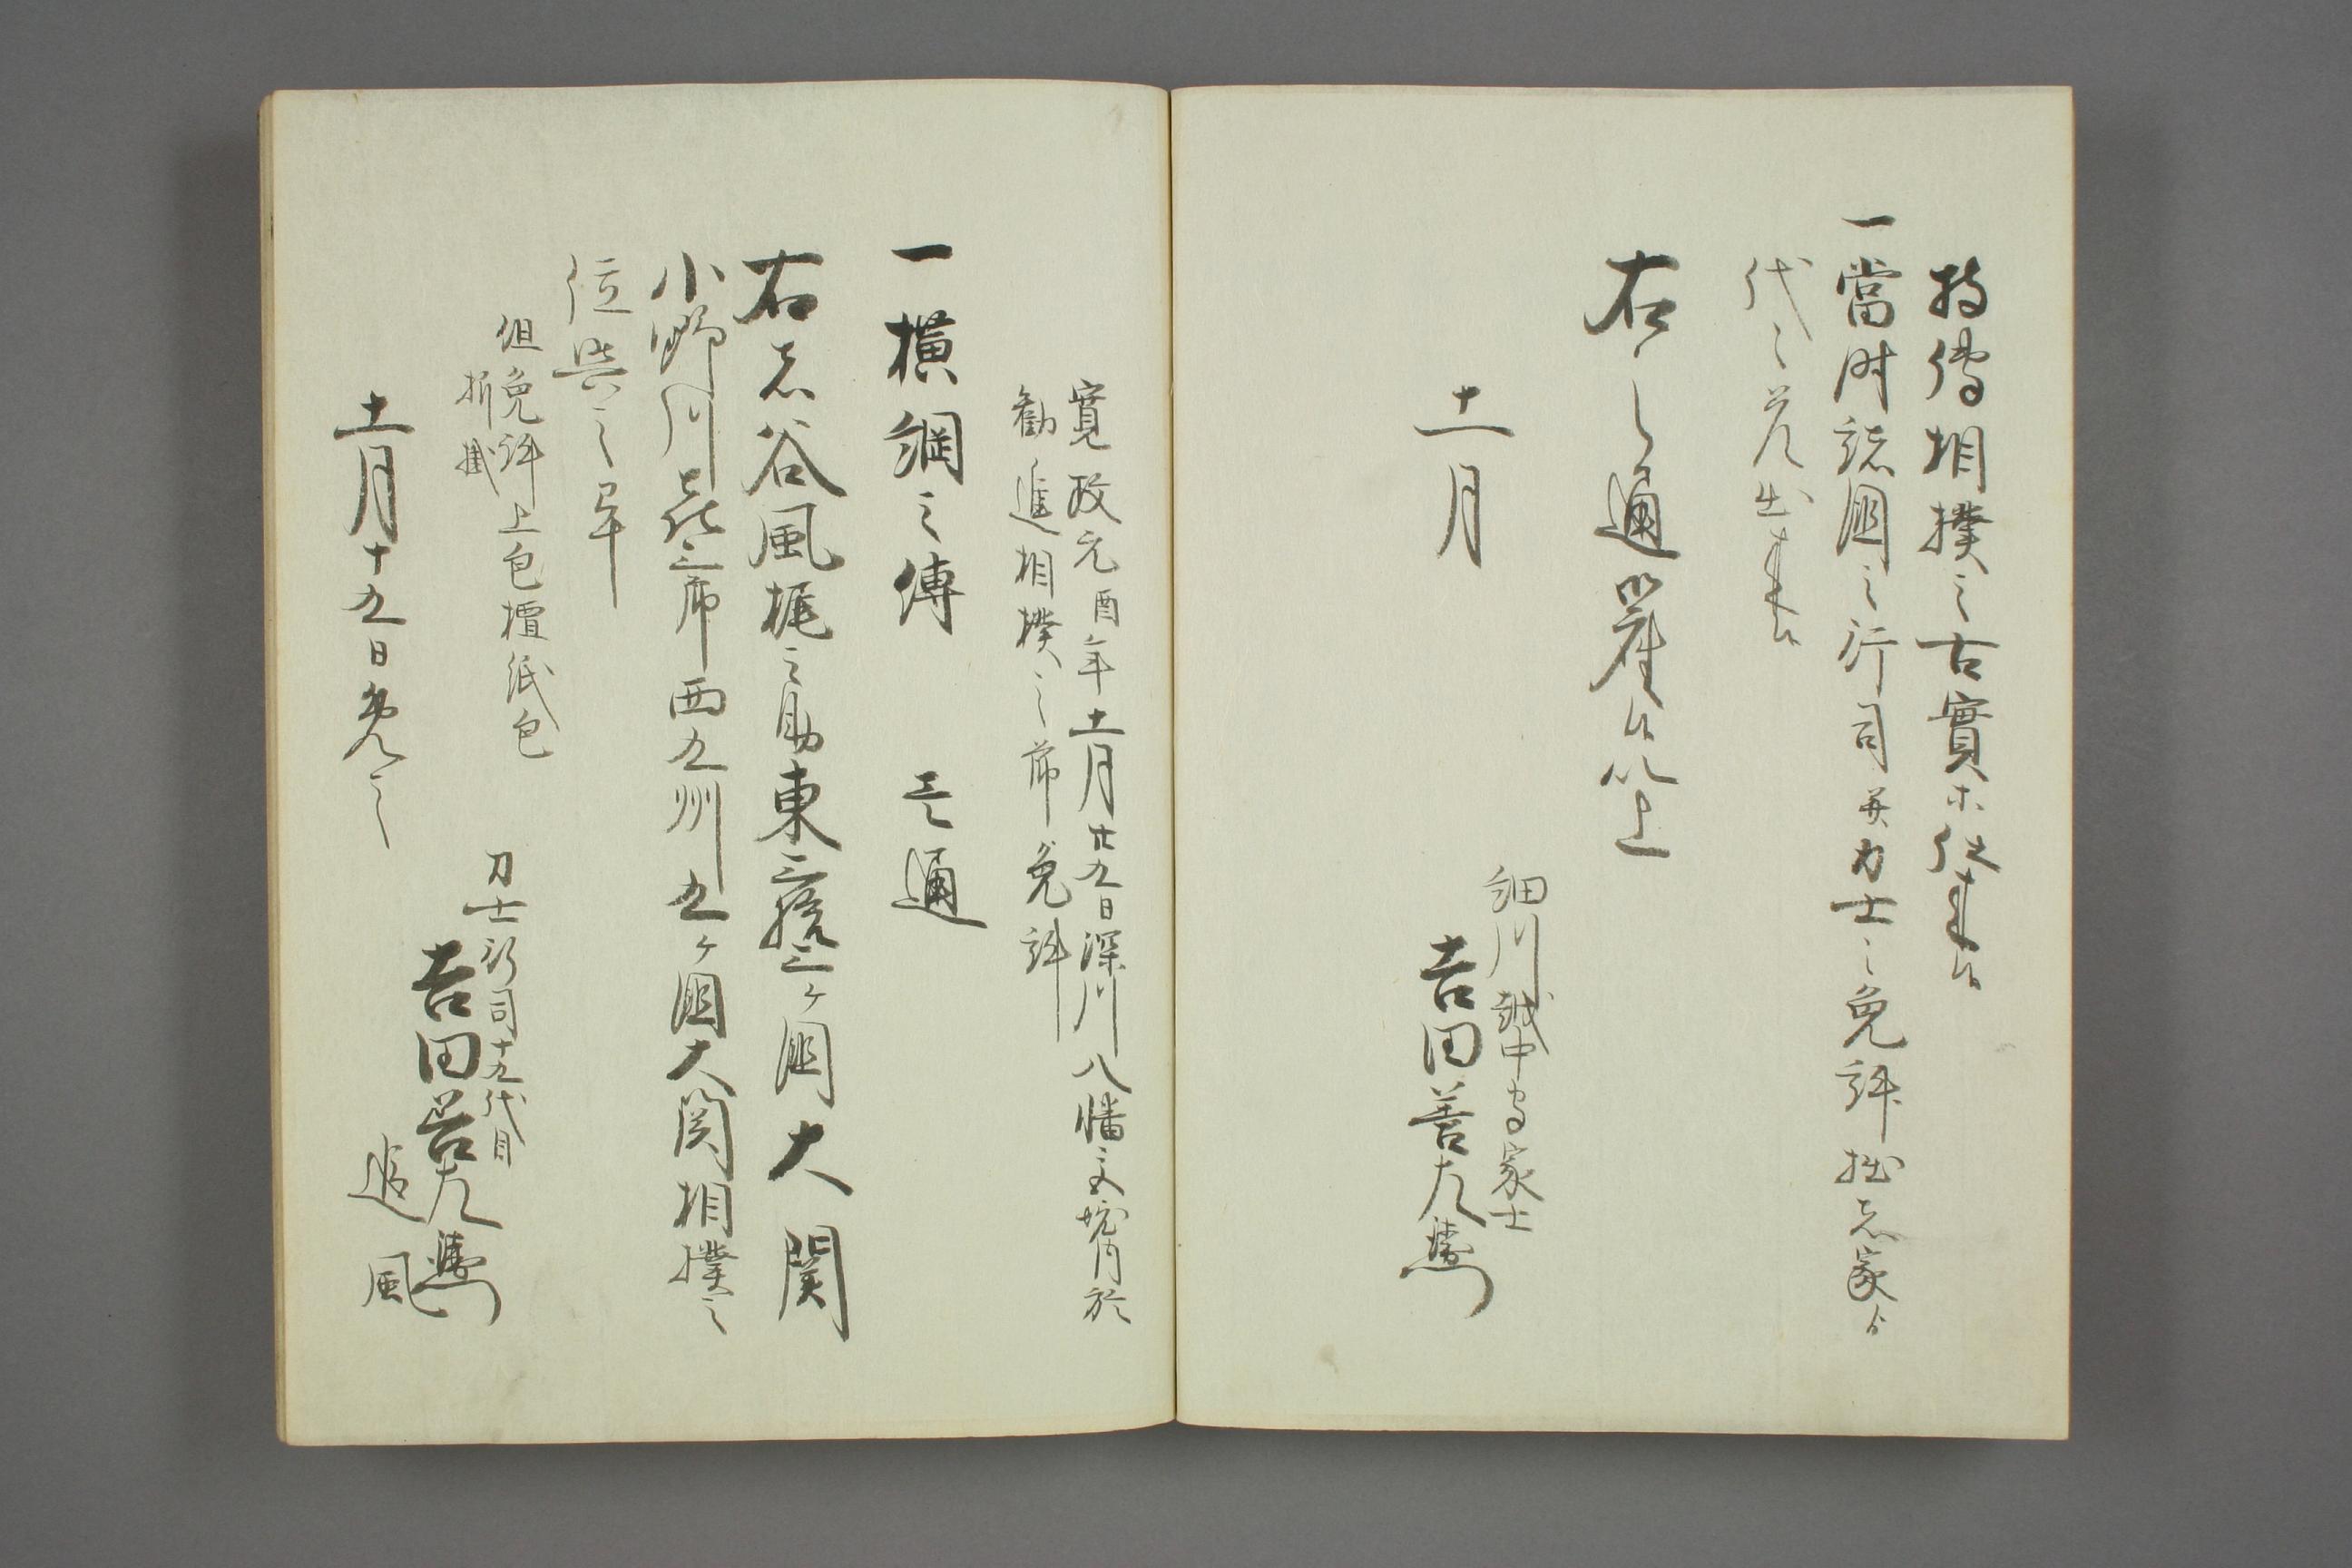 持傳相撲之古實等仕来候
一當時諸國之行司并力士之免許拙者家ゟ
代々差出来候
右之通御座候以上
十一月
細川越中守家士
吉田善左衛門
寛政元酉年十一月廿九日深川八幡之境内於
勧進相撲之節免許
一横綱之傳　壱通
右者谷風梶之助東三拾三ヶ國大関
小野川喜三郎西九州九ヶ國大関相撲之
位與之畢
但免許上包檀紙包
折掛
力士行司十九代目
吉田善左衛門
追風
十一月十九日免之